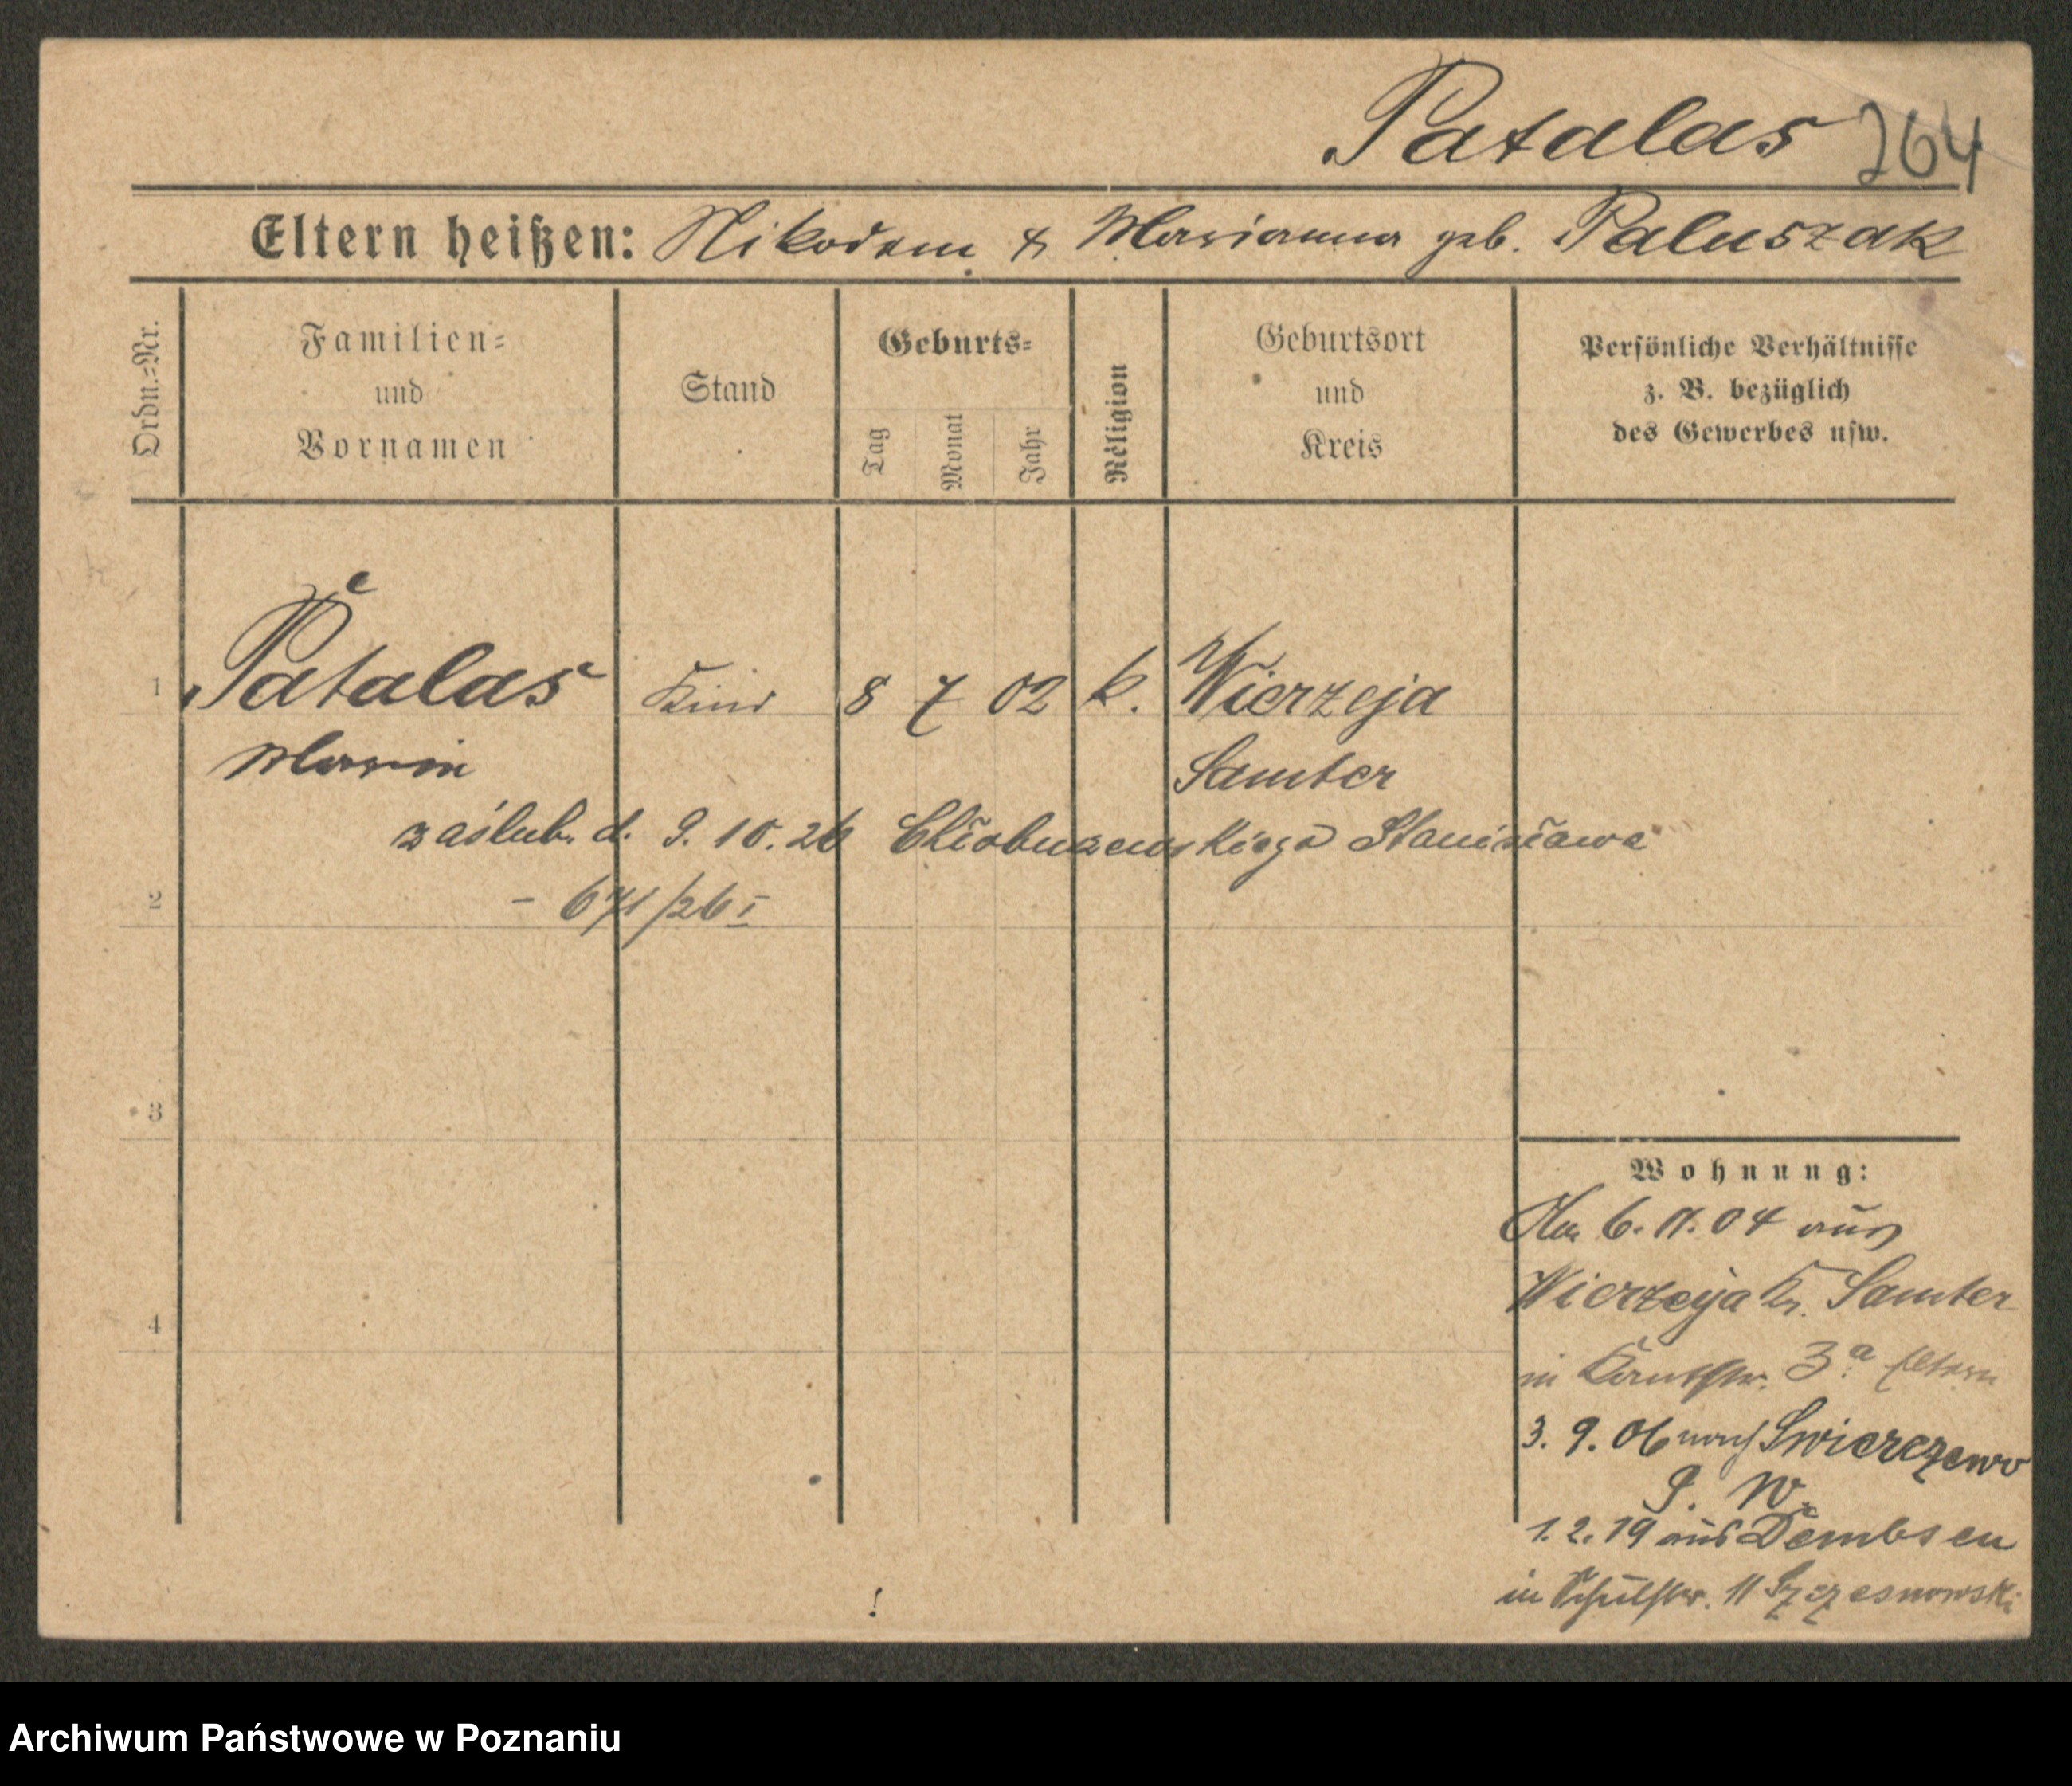 Patalas 264
Eltern heißen: Nikodem & Marianna geb. Paluszak
Ordn.-Nr.
Familien-
und
Vornamen
Stand
Geburts-
Tag
Monat
Jahr
Religion
Geburtsort
und
Kreis
Persönliche Verhältnisse
z. B. bezüglich
des Gewerbes usw.
1 Patalas Kind 8 7 02 k. Wierzeja
Samter
zaślub. d. 9. 10. 26 Stanisława
2 - 671/26 I
3
Wohnung:
6. 11. 04 aus
4 Wierzeja Kr. Samter
in 3a Eltern
3. 9. 06 nach Swierczewo
P. W.
1. 2. 19 aus Dembsen
in Schulstr. 11 Szczesnowski
Archiwum Państwowe w Poznaniu